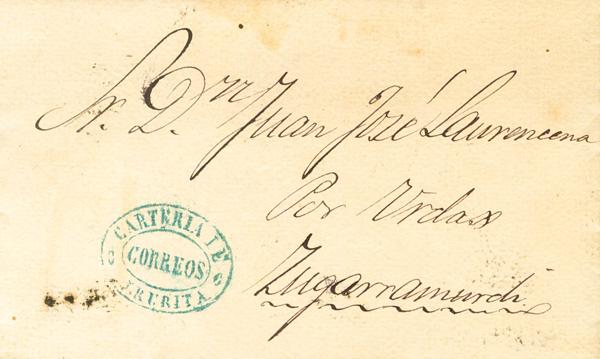 Sr. D.ⁿ Juan José Laurencena
Por Urdax
Zugarramurdi
CARTERIA DE
CORREOS
IRURITA